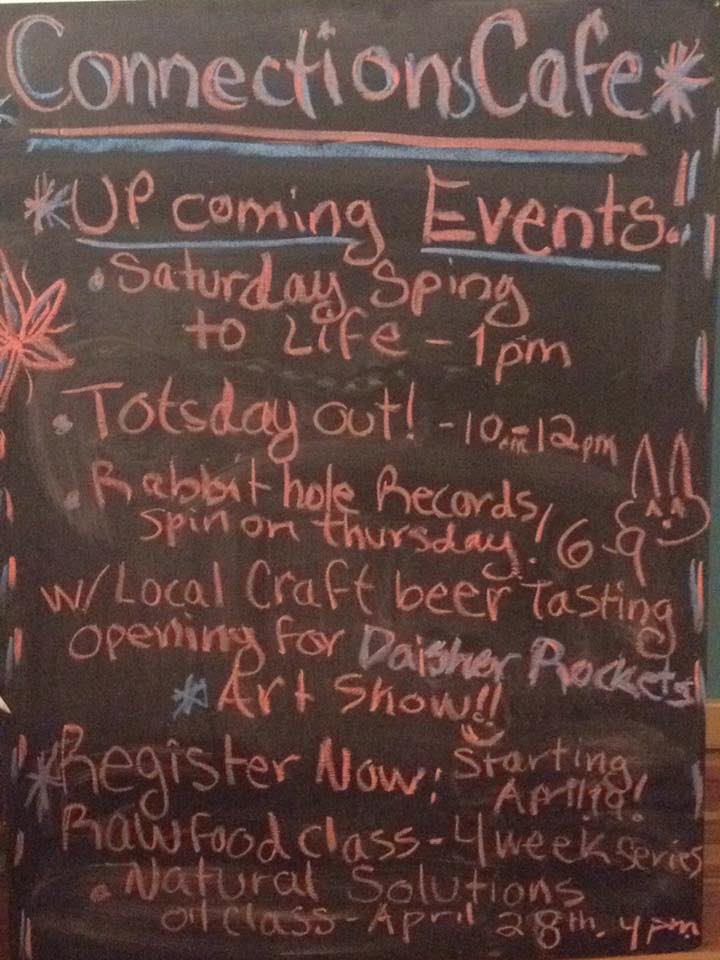 Connections Cafe
Upcoming Events!
• Saturday Sping
to Life - 1pm
• Totsday out! - 10am-12pm
• Rabbit hole Records,
spin on thursday! 6-9
w/ Local Craft beer Tasting
opening for Daisher Rockets
* Art Show!!
* Register Now: Starting
April 19!
Raw food class - 4 week series
• Natural Solutions
oil class - April 28th. 4pm